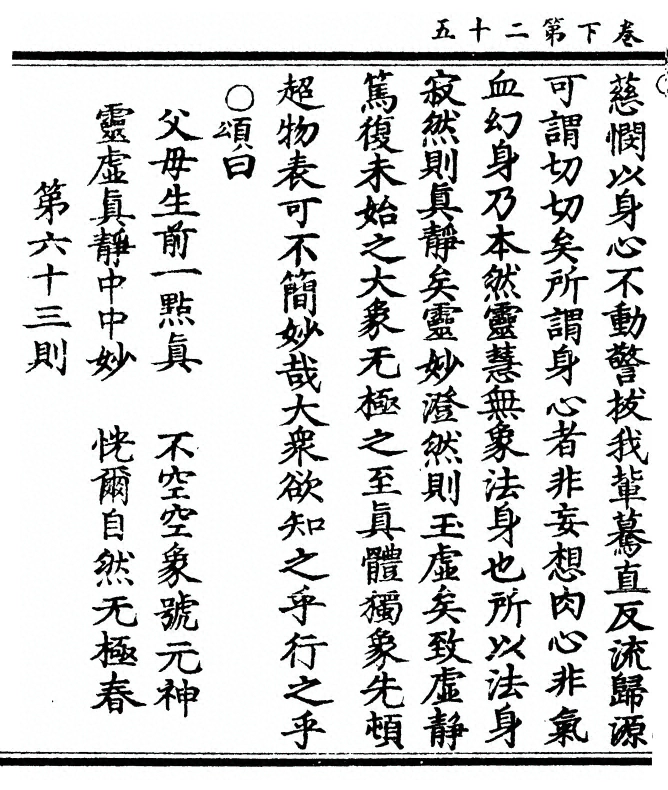 卷下第二十五
慈憫以身心不動警拔我輩驀直反流歸源
可謂切切矣所謂身心者非妄想肉心非氣
血幻身乃本然靈慧無象法身也所以法身
寂然則眞靜矣靈妙澄然則玉虛矣致虛靜
篤復未始之大象无極之至眞體獨象先頓
超物表可不簡妙哉大衆欲知之乎行之乎
○頌曰
父母生前一點眞 不空空象號元神
靈虛眞靜中中妙 恍爾自然无極春
第六十三則